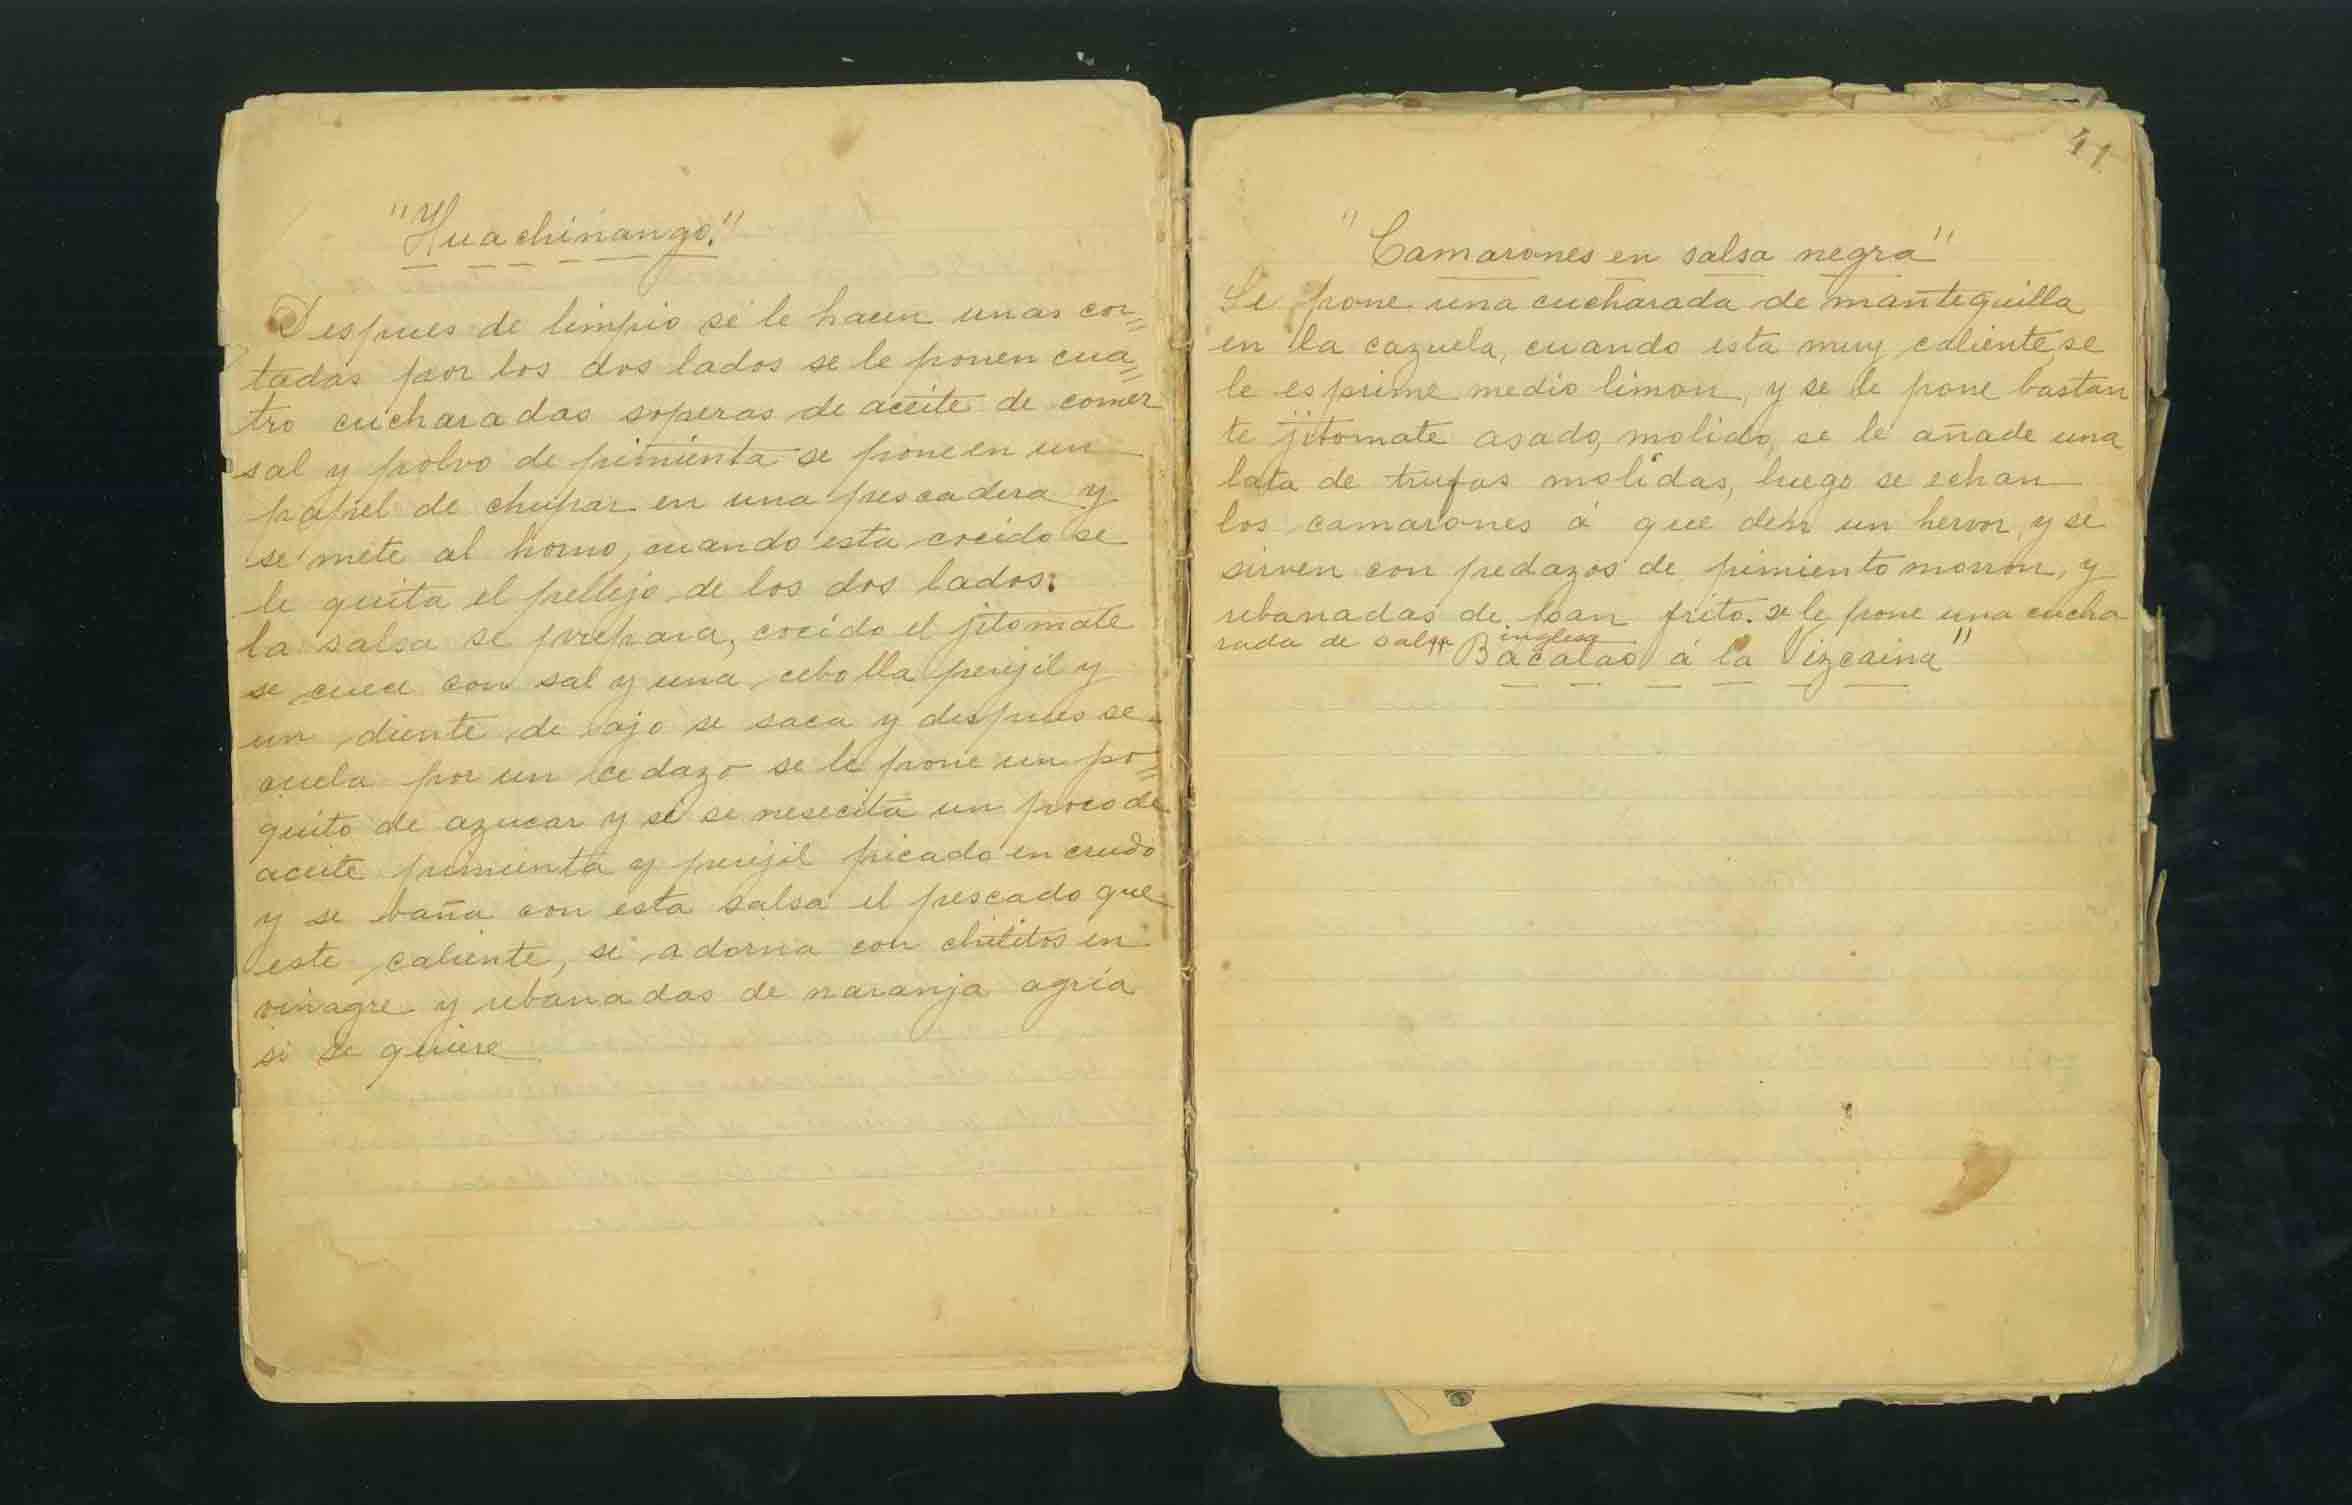 "Huachinango."
Despues de limpio se le hacen unas cor=
tadas por los dos lados se le ponen cua=
tro cucharadas soperas de aceite de comer
sal y polvo de pimienta se pone en un
papel de chupar en una pescadera y
se mete al horno, cuando esta cocido se
le quita el pellejo de los dos lados:
la salsa se prepara, cocido el jitomate
se cuece con sal y una cebolla perejil y
un diente de ajo se saca y despues se
cuela por un cedazo se le pone un po=
quito de azucar y si se nesecita un poco de
aceite pimienta y perejil picado en crudo
y se baña con esta salsa el pescado que
este caliente, se adorna con chilitos en
vinagre y rebanadas de naranja agria
si se quiere
41
"Camarones en salsa negra"
Se pone una cucharada de mantequilla
en la cazuela, cuando esta muy caliente, se
le esprime medio limon, y se le pone bastan
te jitomate asado, molido, se le añade una
lata de trufas molidas, luego se echan
los camarones á que den un hervor, y se
sirven con pedazos de pimiento morron, y
rebanadas de pan frito. se le pone una cucha
rada de salsa inglesa
"Bacalao á la Vizcaina"